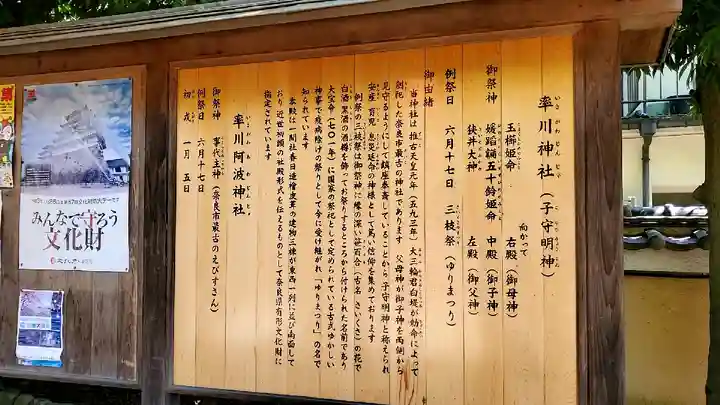 率川神社（子守明神）
いさがわじんじゃ
向かって
御祭神　玉櫛姫命　右殿（御母神）
媛蹈韛五十鈴姫命　中殿（御子神）
狭井大神　左殿（御父神）
例祭日　六月十七日　三枝祭（ゆりまつり）
御由緒
当神社は推古天皇元年（五九三年）大三輪君白堤が勅命によって
創祀した奈良市最古の神社であります　父母神が御子神を両側から
見守るようにして鎮座奉斎していることから子守明神と称えられ
安産　育児　息災延命の神様として篤い信仰を集めております
例祭の三枝祭は御祭神に縁の深い笹百合（古名　さいくさ）の花で
白酒黒酒の酒罇を飾ってお祭りするところから付けられた名前であり
大宝令（七〇一年）に国家の祭祀として定められている古式ゆかしい
神事で疫病除けの祭りとして今に受け継がれ「ゆりまつり」の名で
知られています
本殿は一間社春日造檜皮葺の建物三棟が東西一列に並び南面して
おり近世初頭の社殿形式を伝えるものとして奈良県有形文化財に
指定されています
率川阿波神社
いさがわあわじんじゃ
御祭神　事代主神（奈良市最古のえびすさん）
例祭日　六月十七日
初戎　一月五日
みんなで守ろう
文化財